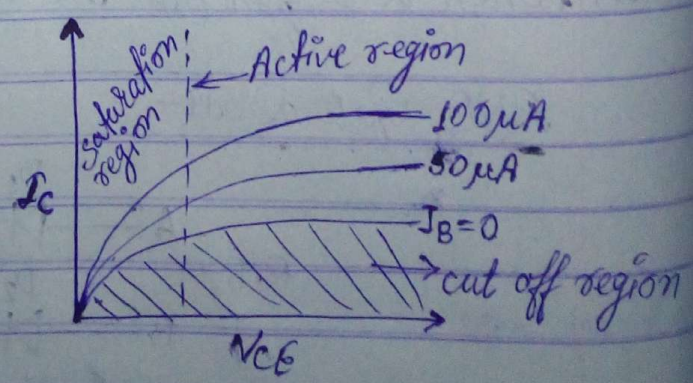 Saturation
region
Active region
100μA
50μA
IC
IB=0
cut off region
VCE